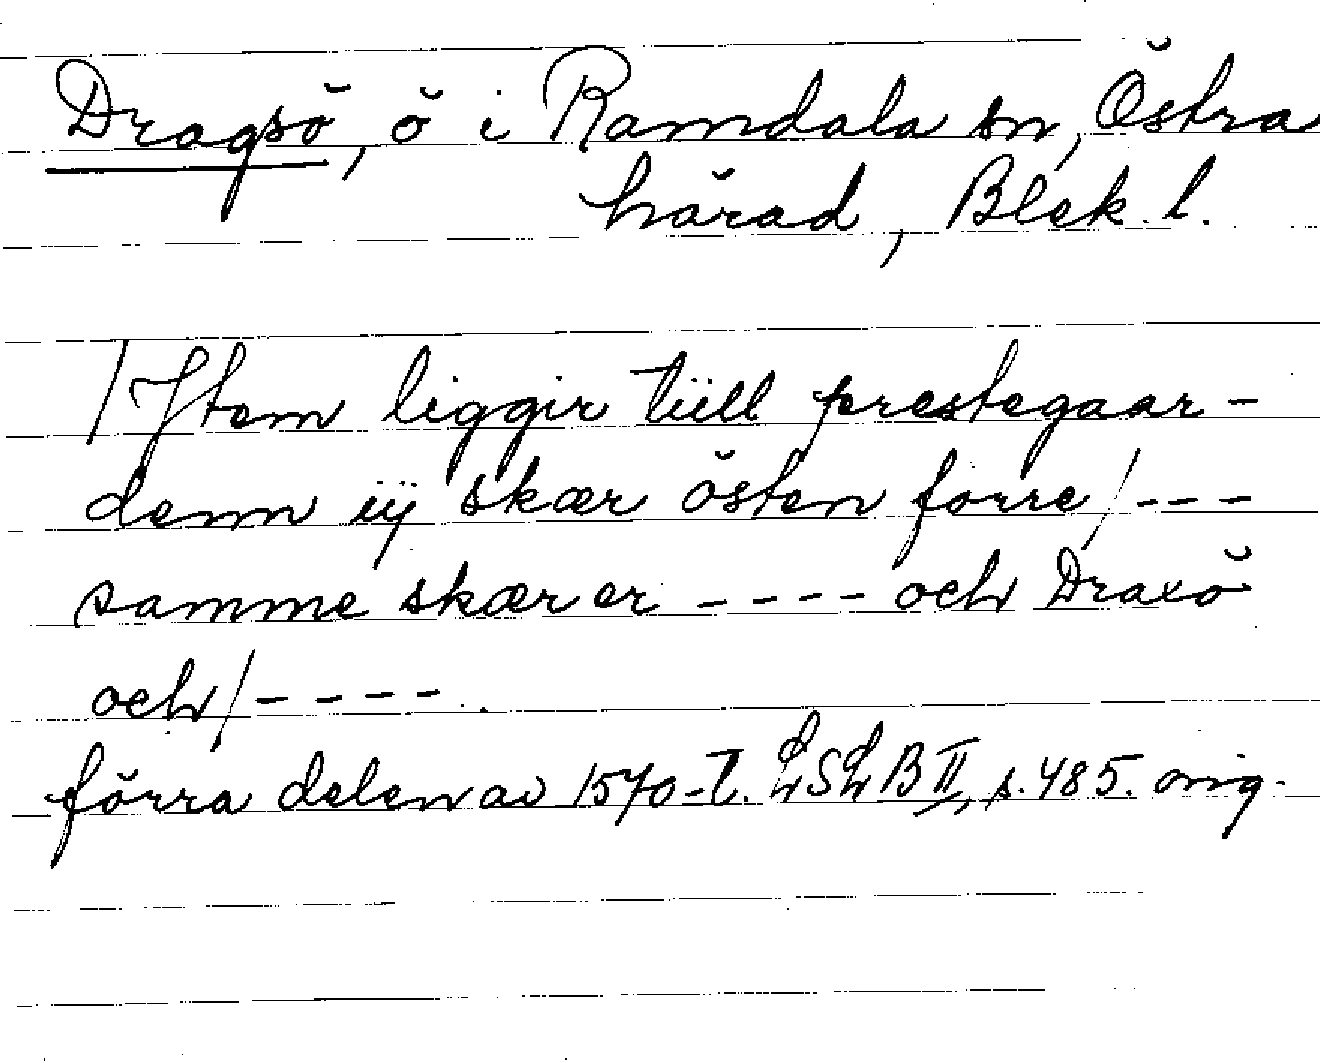 Dragsö, ö i Ramdala sn, Östra
härad, Blek. l.
/Item liggir tiill prestegaar-
denn iij skær östen forre/---
samme skær er ---- och Draxö
och/----.
förra delen av 1570-t. LSLB II, s. 485. orig.